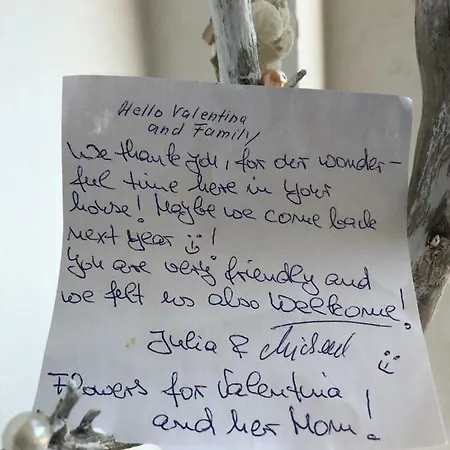 Hello Valentina
and Family
We thank you, for our wonder-
ful time here in your
house! Maybe we come back
next year :)!
you are very friendly and
we felt us also Wellkome!
Julia & Michael :)
Flowers for Valentina
and her Mom!